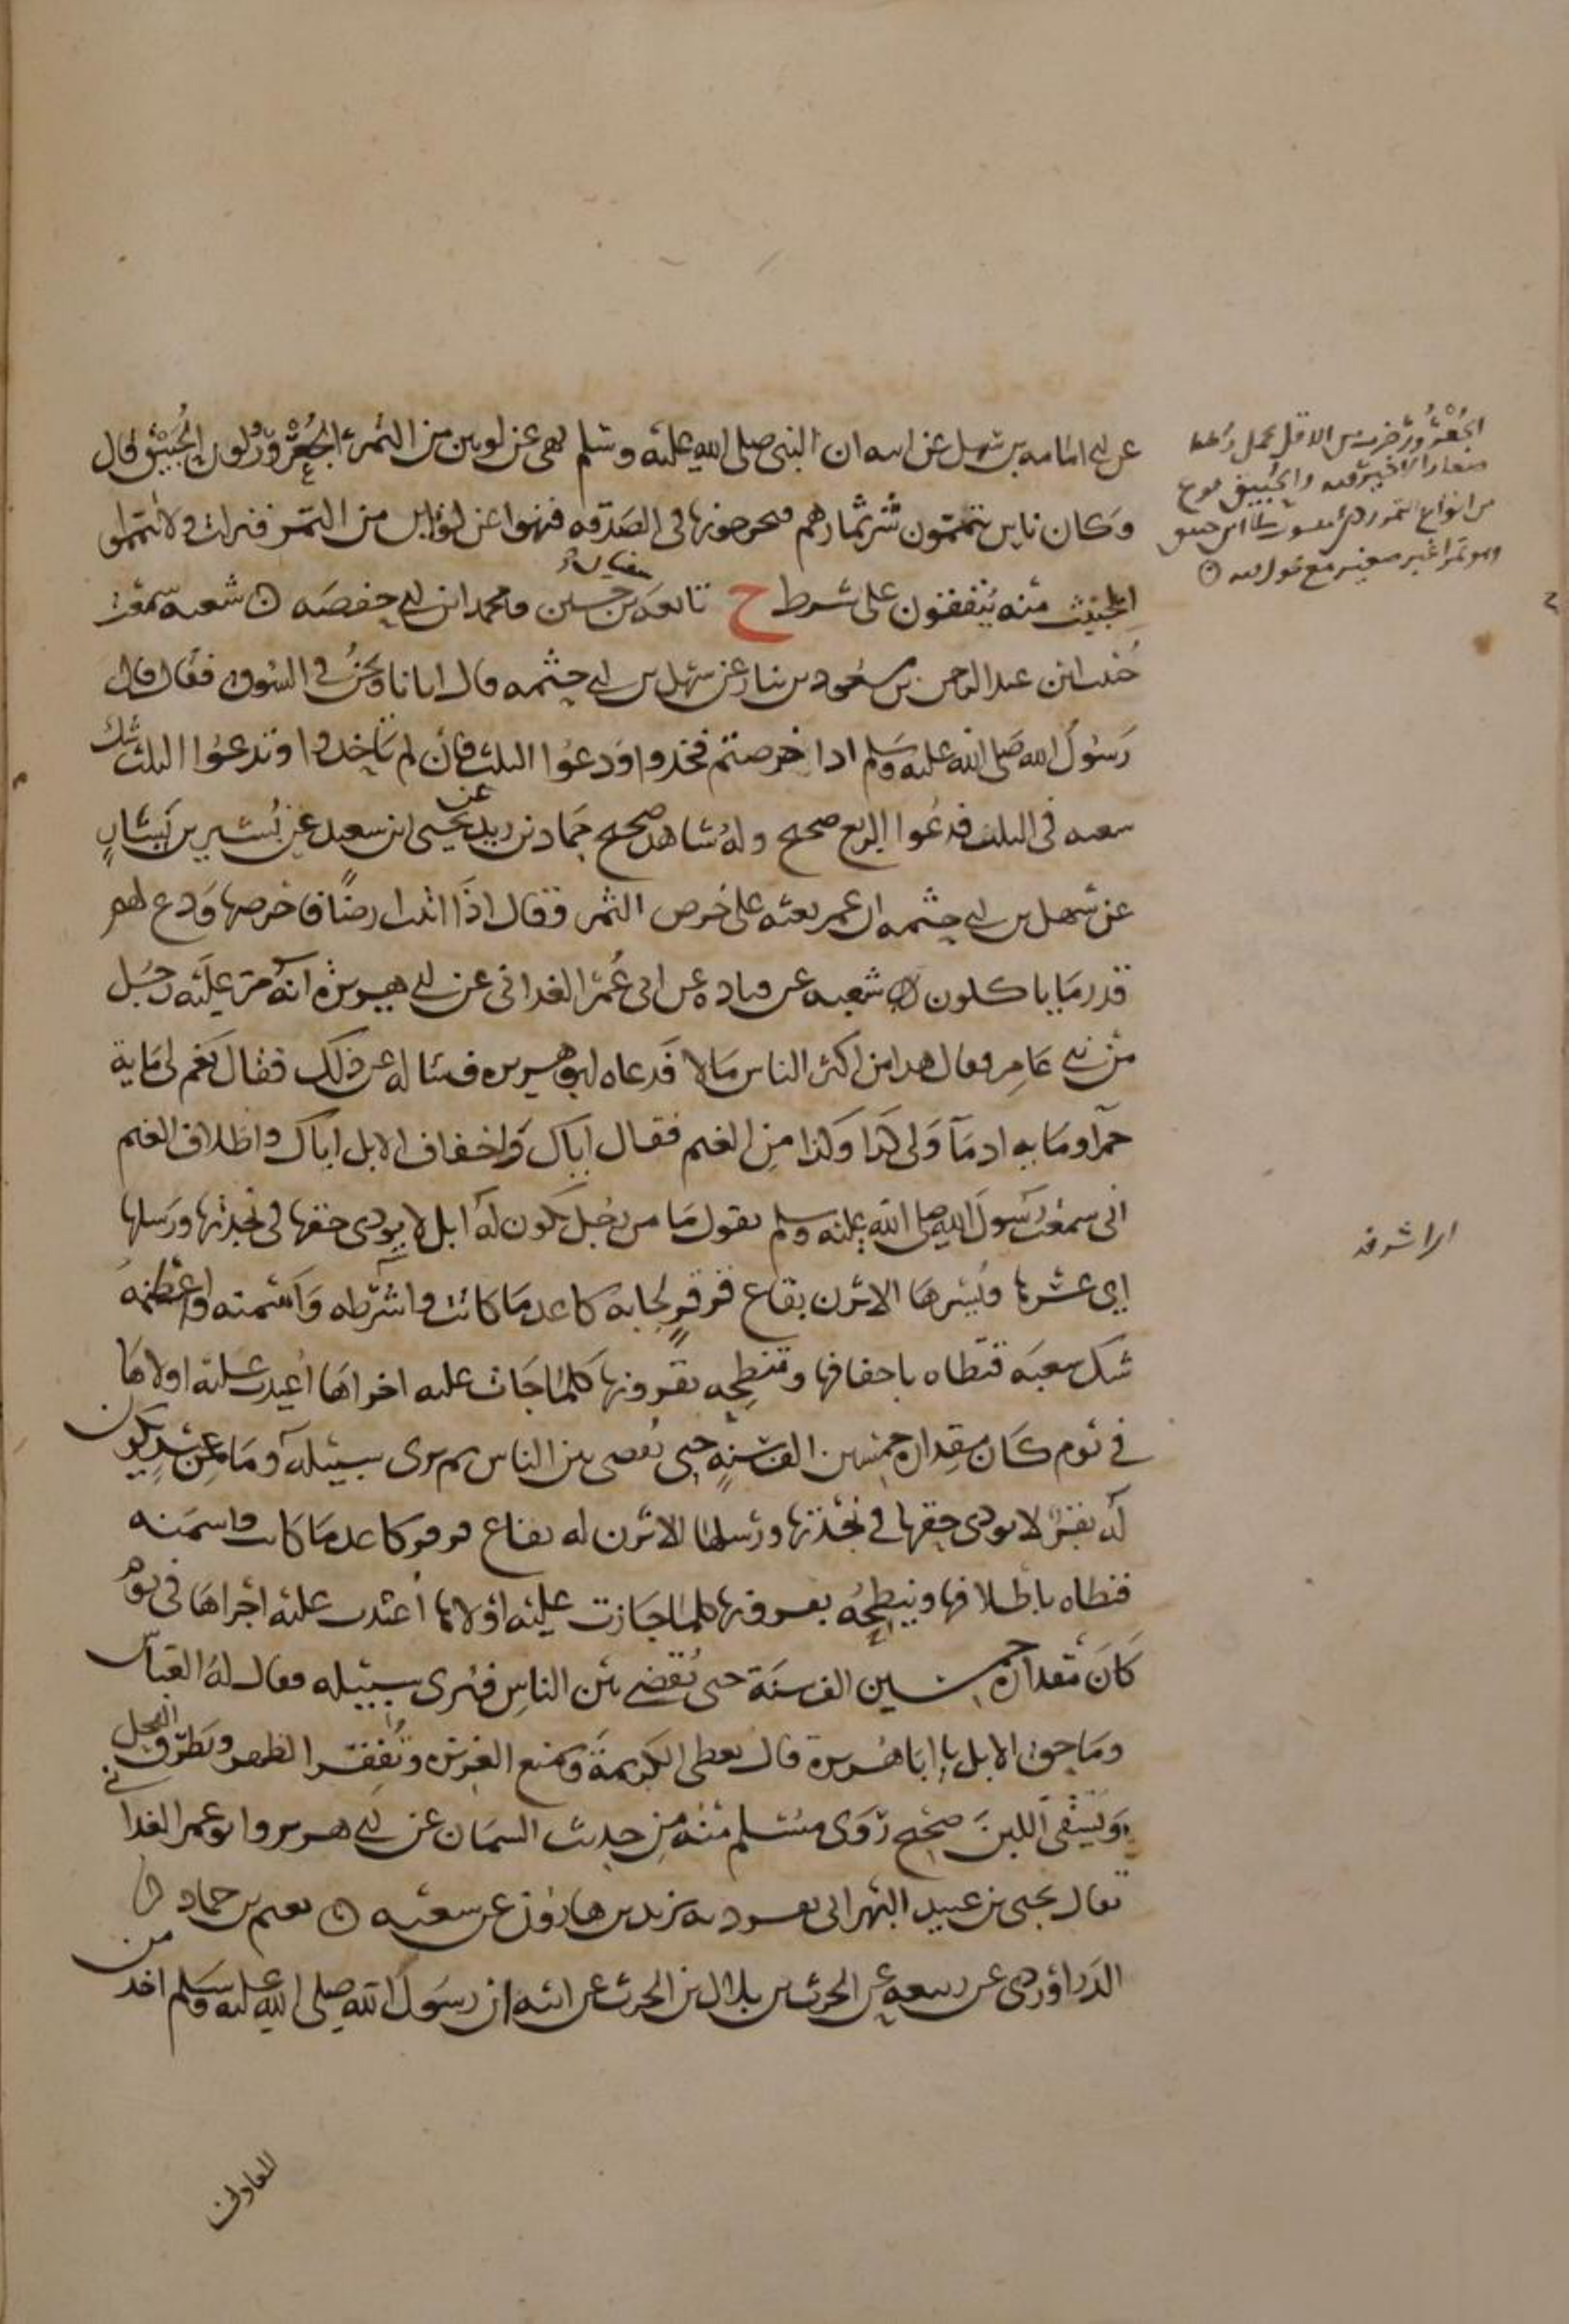 عن ابي امامه بن سهل عن ابيه ان النبي صلى الله عليه وسلم نهى عن لونين من التمر الجعرور ولون الحبيق قال
وكان ناس يتيممون شر ثمارهم فيخرجونها في الصدقه فنهوا عن لونين من التمر فنزلت ولا تيمموا
الخبيث منه ينفقون على شرط خ تابعه سفيان بن حسين ومحمد ابن ابي حفصه شعبه سمعت
خبيب ابن عبد الرحمن بن مسعود بن نيار عن سهل بن ابي حثمه قال اتانا ونحن في السوق فقال قال
رسول الله صلى الله عليه وسلم اذا خرصتم فخذوا ودعوا الثلث فان لم تاخذوا او تدعوا الثلث شك
شعبه في الثلث فدعوا الربع صحيح وله شاهد صحيح حماد بن زيد عن يحيى ابن سعيد عن بشير بن يسار
عن سهل بن ابي حثمه ان عمر بعثه على خرص التمر وقال اذا اتيت ارضا فاخرصها ودع لهم
قدر ما ياكلون شعبه عن قتاده عن ابي عمر الغداني عن ابي هريره انه مر عليه رجل
من بني عامر فقال هذا من اكثر الناس مالا فدعاه ابو هريره فساله عن ذلك فقال نعم لي ماية
حمرا وماية ادما ولي كذا وكذا من الغنم فقال اياك واخفاف الابل اياك واظلاف الغنم
اني سمعت رسول الله صلى الله عليه وسلم يقول ما من رجل يكون له ابل لا يودى حقها في نجدتها ورسلها
اي عسرها ويسرها الا برز بقاع قرقر لجابه كاغد ما كانت واشرطه واسمنه واعظمه
شك شعبه فتطاه باخفافها وتنطحه بقرونها كلما جات عليه اخراها اعيدت عليه اولاها
في يوم كان مقداره خمسين الف سنة حتى يقضى بين الناس ثم يرى سبيله وما من عبد يكون
له بقر لا يودى حقها في نجدتها ورسلها الا برز له بقاع قرقر كاغد ما كانت واسمنه
فتطاه باظلافها وتنطحه بقرونها كلما جازت عليه اولاها اعيدت عليه اخراها في يوم
كان مقداره خمسين الف سنة حتى يقضى بين الناس فيرى سبيله فقال له العباس
وما حق الابل يا ابا هريرة قال تعطى الكريمة وتمنع الغزيرة وتفقر الظهر وتطرق الفحل
وتسقى اللبن صحيح روى مسلم منه من حديث السمان عن ابي هريره وابو عمر الغداني
يقال يحيى بن عبيد البهراني تفرد به يزيد بن هارون عن شعبه نعيم بن حماد
الدراوردي عن ربيعه عن الحرث بن بلال بن الحرث عن ابيه ان رسول الله صلى الله عليه وسلم اخذ من
المعادن
الجعرور ضرب من الدقل يحمل رطبا
صغارا لا خير فيه والحبيق نوع
من انواع التمر ردي منسوب الى ابن حبيق
وهو تمر اغبر صغير مع طول فيه